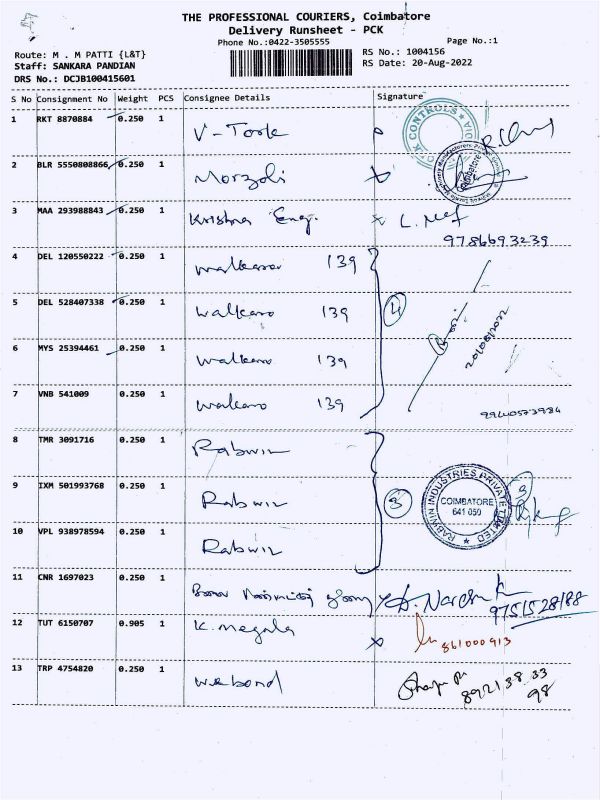 THE PROFESSIONAL COURIERS, Coimbatore
Delivery Runsheet - PCK
Phone No.:0422-3505555
Page No.:1
Route: M . M PATTI {L&T}
RS No.: 1004156
Staff: SANKARA PANDIAN
RS Date: 20-Aug-2022
DRS No.: DCJB100415601
S No Consignment No Weight PCS Consignee Details Signature
1 RKT 8870884 0.250 1 V-Tork
2 BLR 5550808866 0.250 1 Morzoli
Coimbatore
3 MAA 293988843 0.250 1 Krishna Eng.
9786693239
4 DEL 120550222 0.250 1 walkaroo 139
5 DEL 528407338 0.250 1 walkaro 139 4
20/08/2022
6 MYS 25394461 0.250 1 walkaro 139
7 VNB 541009 0.250 1 walkaro 139
8 TMR 3091716 0.250 1 Rabwin
9 IXM 501993768 0.250 1 Rabwin 3
RABWIN INDUSTRIES PRIVATE LIMITED
COIMBATORE
641 050
3
10 VPL 938978594 0.250 1 Rabwin
11 CNR 1697023 0.250 1
Naresh K
9751528188
12 TUT 6150707 0.905 1 K. Megala
861000913
13 TRP 4754820 0.250 1 webond
892138 33
98